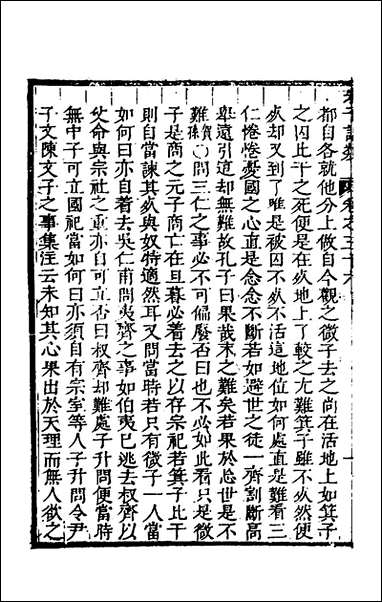 朱子語類
卷之三十六
都自各就他分上做自今觀之微子去之尚在活地上如箕子
之囚比干之死便是在死地上了較之尤難箕子雖不死然便
死却又到了唯是被囚不死不活這地位如何處直是難看三
仁惓惓憂國之心直是念念不斷若如避世之徒一齊割斷高
舉遠引這却無難故孔子曰果哉末之難矣若果於忘世是不
難 〇問三仁之事必不可偏廢否曰也不必如此看只是微
子是商之元子商亡在旦暮必着去之以存宗祀若箕子比干
則自當諫其死與奴特適然耳又問當時若只有微子一人當
如何曰亦自着去吳仁甫問夷齊之事如伯夷已逃去叔齊以
父命與宗社之重亦自可立否曰叔齊却難處子升問便當時
無中子可立國祀當如何曰亦須自有宗室等人子升問令尹
子文陳文子之事集注云未知其心果出於天理而無人欲之